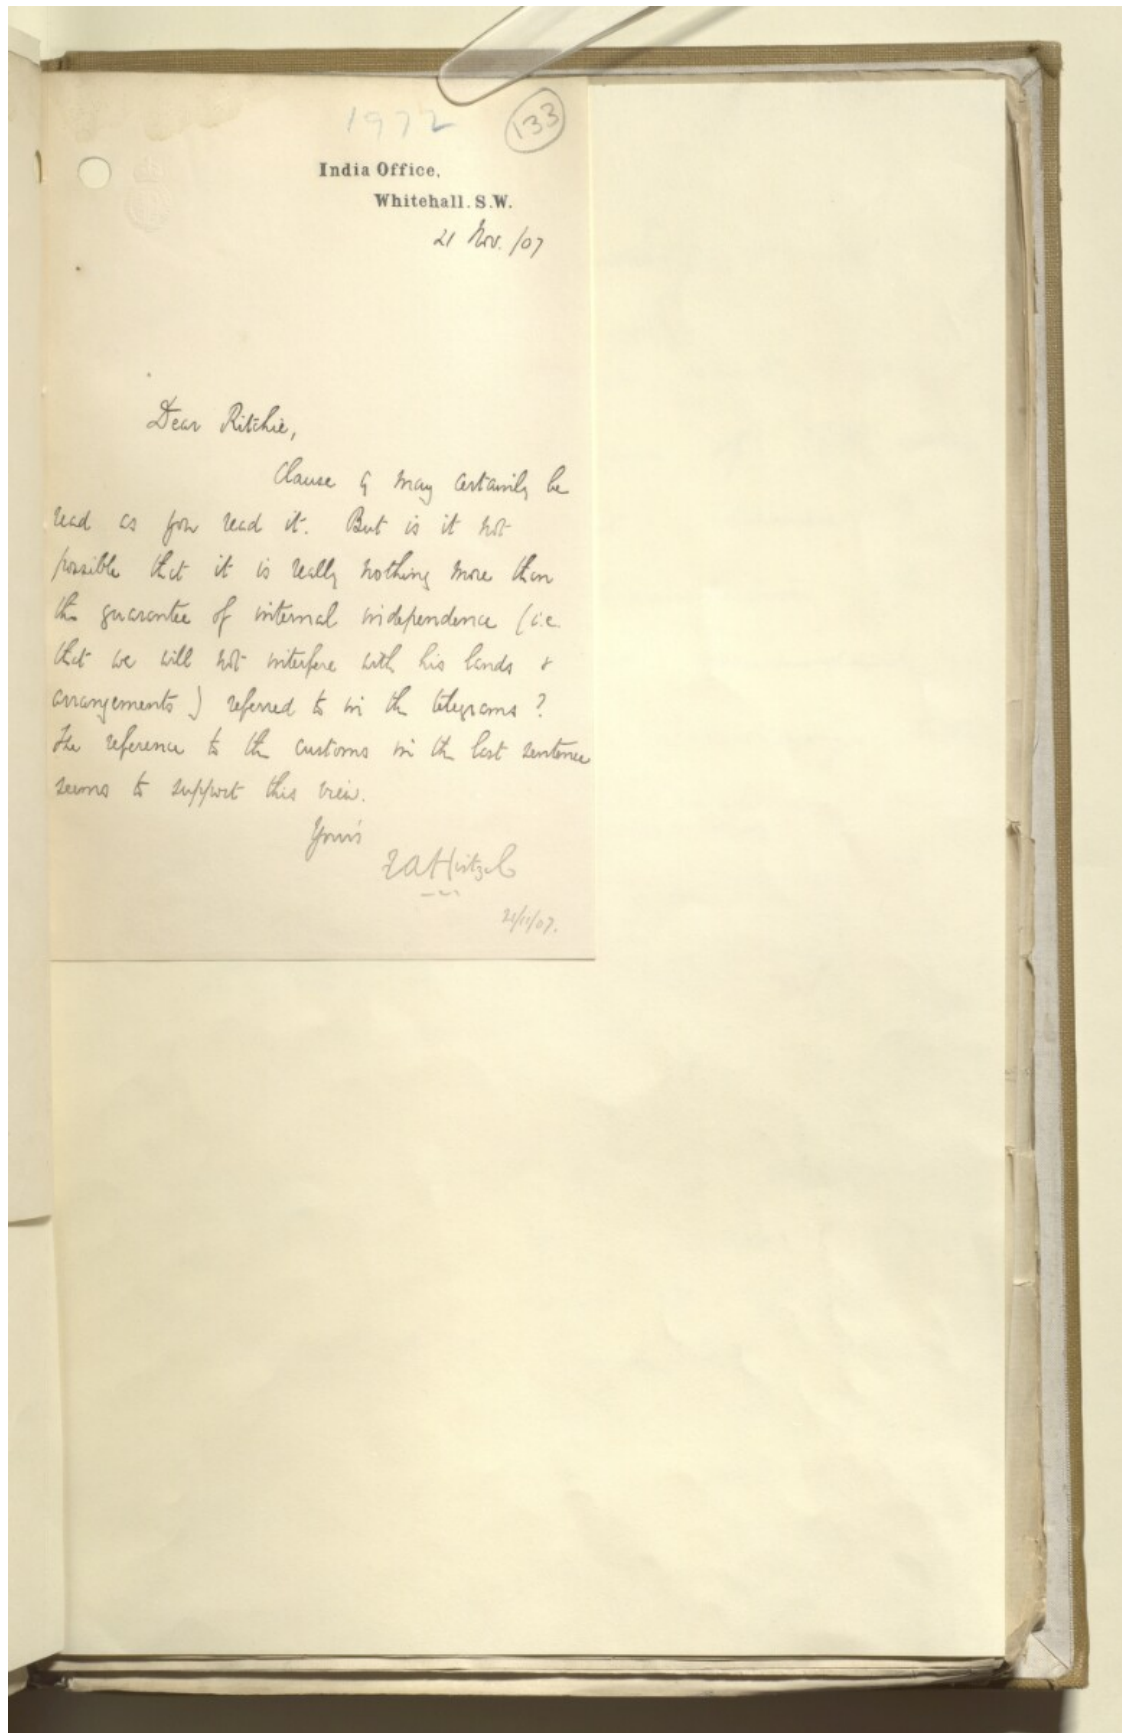 1972
133
India Office,
Whitehall. S.W.
21 Nov. /07
Dear Ritchie,
Clause 9 may certainly be
read as you read it. But is it not
possible that it is really nothing more than
the guarantee of internal independence (i.e.
that we will not interfere with his lands &
arrangements) referred to in the telegrams?
The reference to the customs in the last sentence
seems to support this view.
Yours
F A Hirtzel
21/11/07.